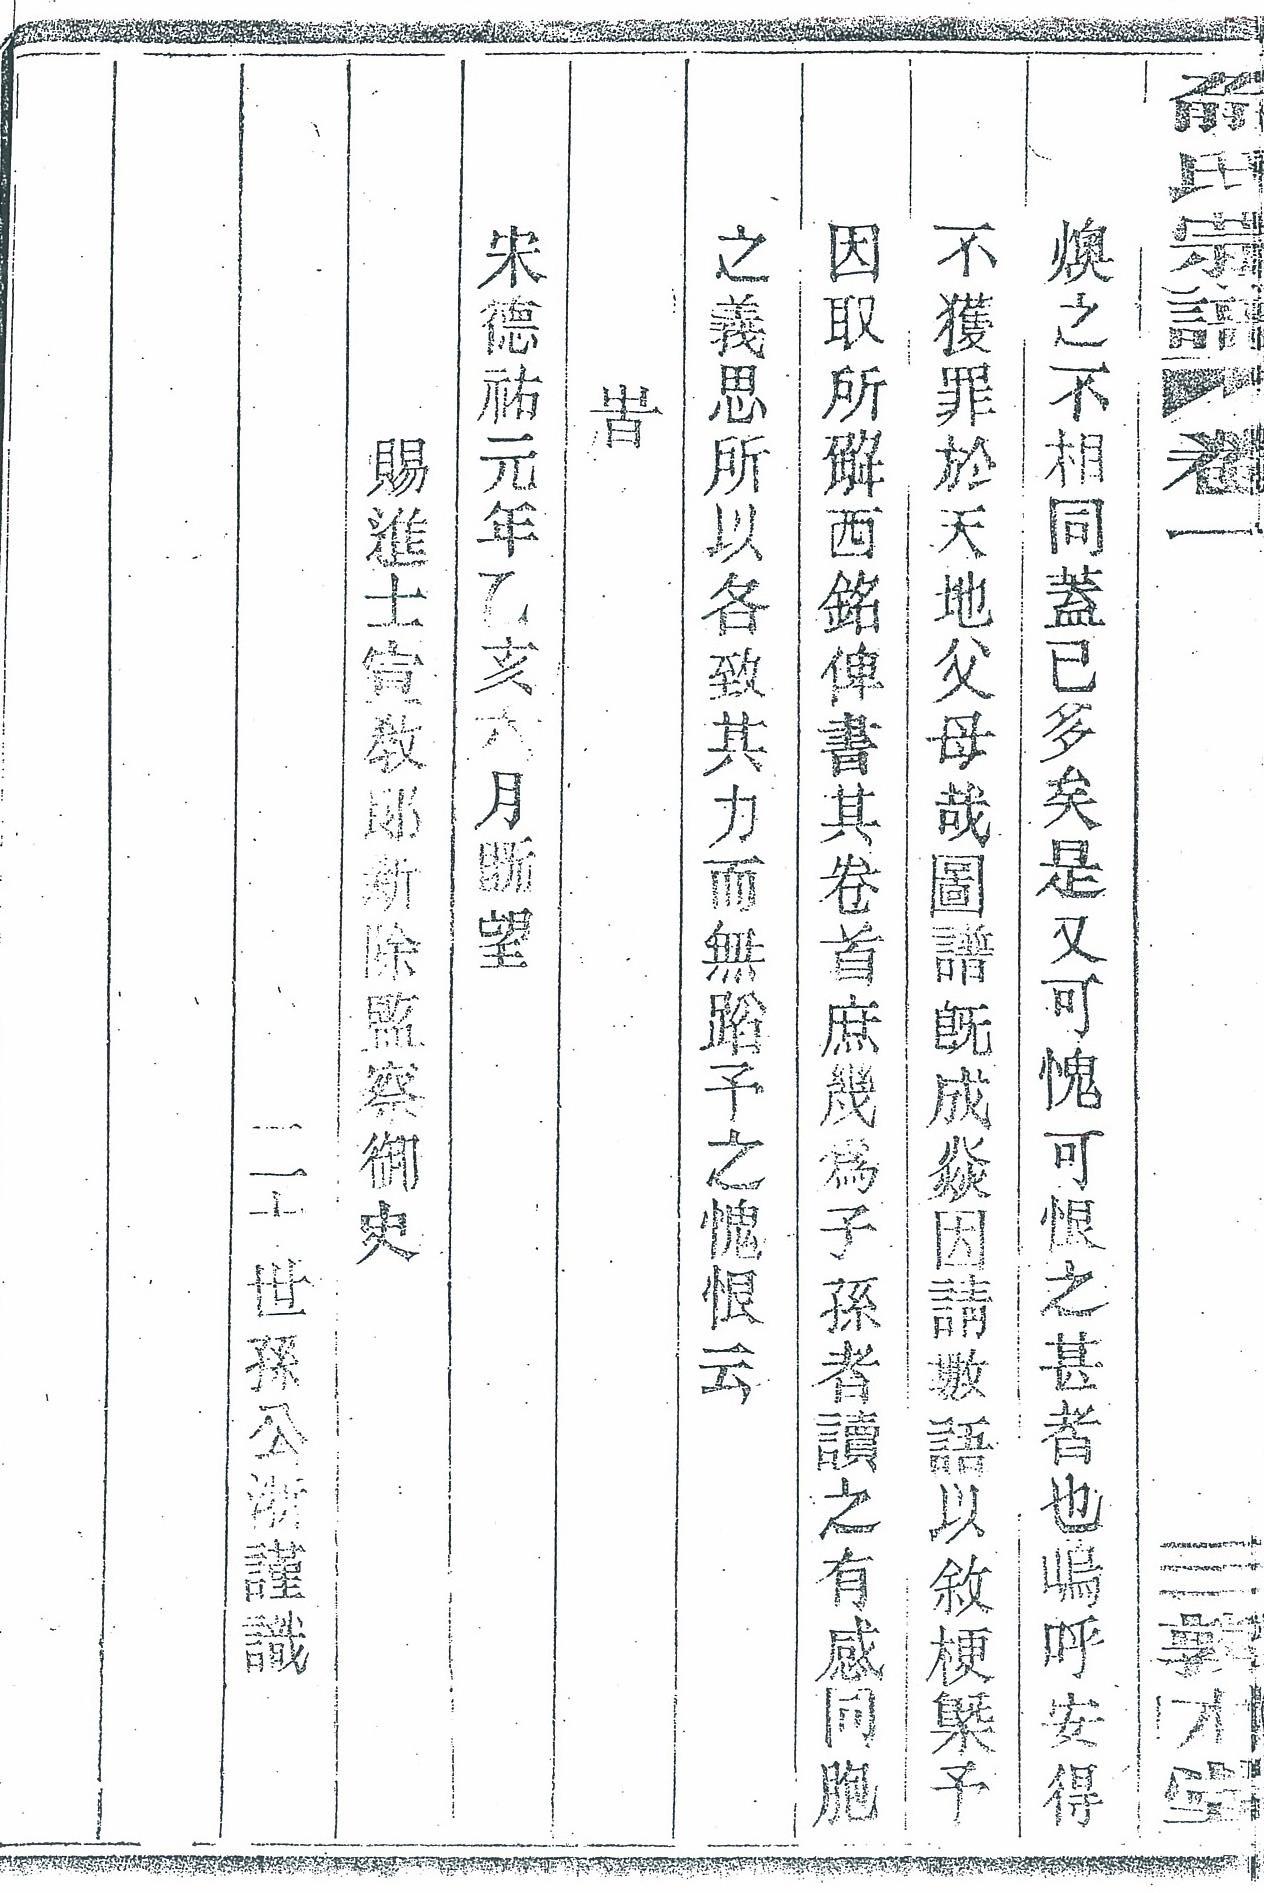 俞氏宗譜 卷一
煥之不相同蓋已多矣是又可愧可恨之甚者也嗚呼安得
不獲罪於天地父母哉圖譜旣成焱因請數語以敘梗槩予
因取所觧西銘俾書其卷首庶幾爲子孫者讀之有感同胞
之義思所以各致其力而無蹈予之愧恨云
旹
宋德祐元年乙亥六月旣望
賜進士宣教郎新除監察御史
二十世孫公浙謹識